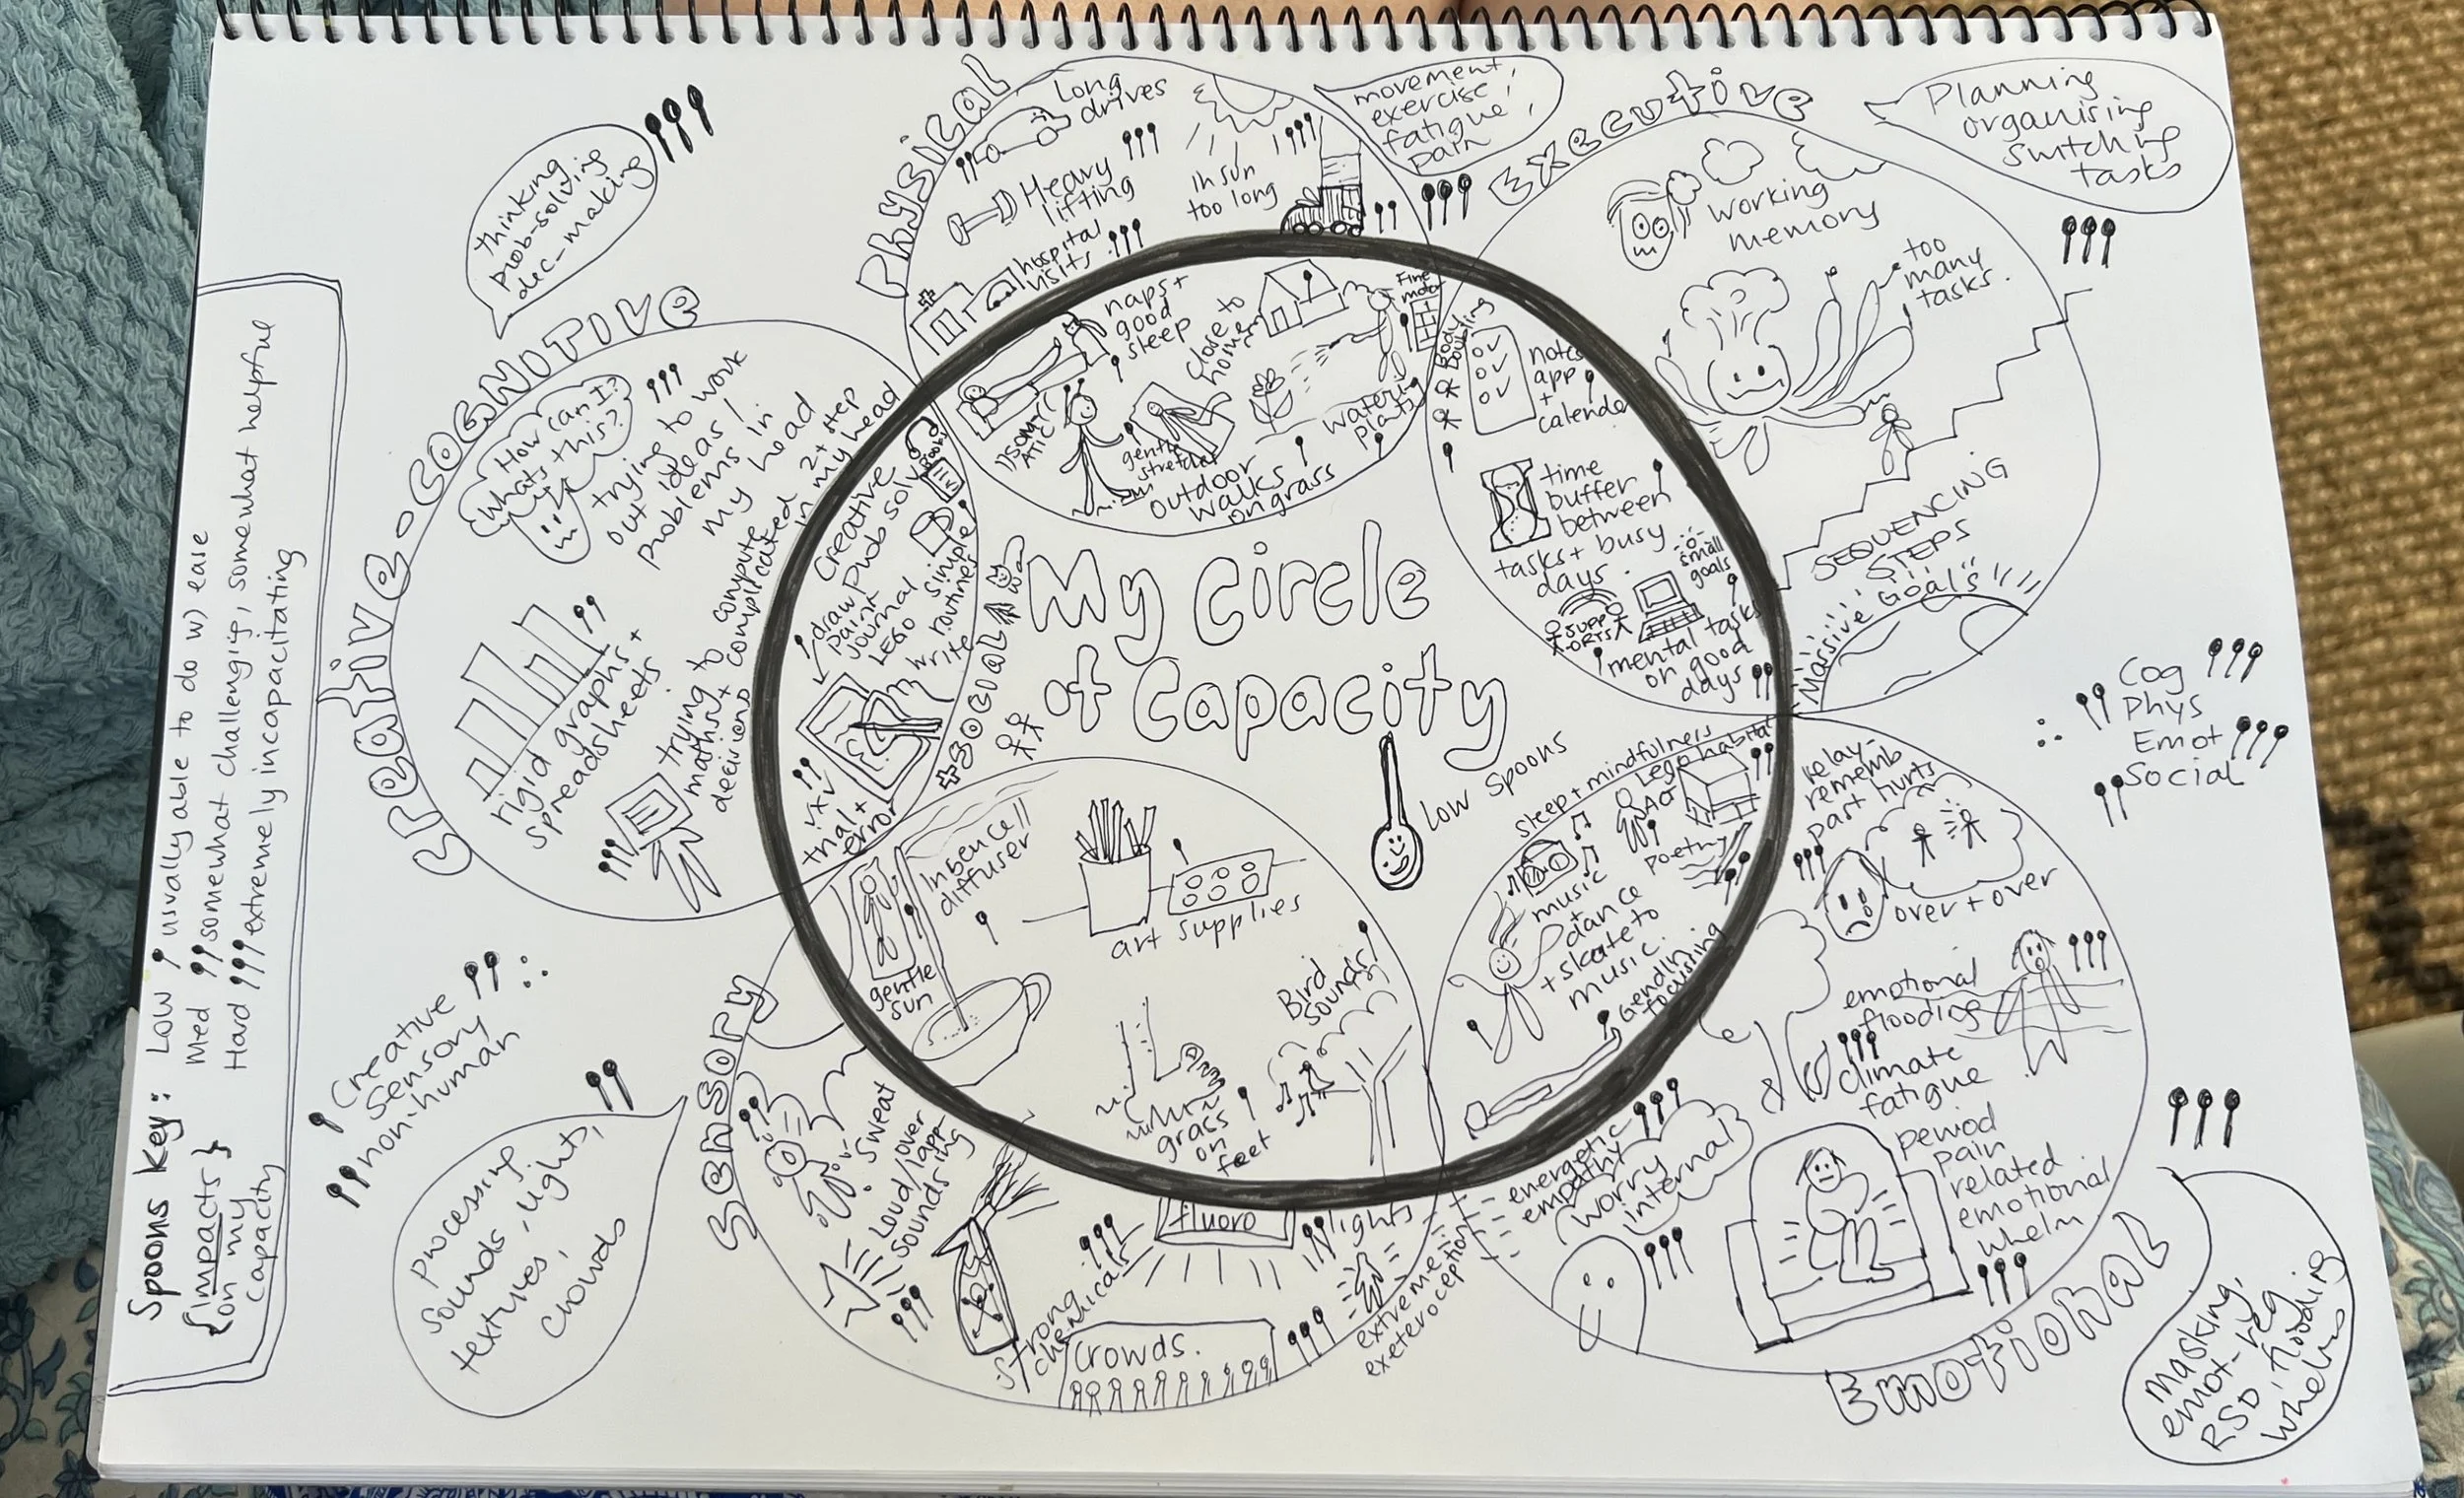 My Circle
of Capacity
low spoons
Spoons Key:
{impacts}
{on my
capacity
Low usually able to do w) ease
Med somewhat challenging, somewhat helpful
Hard extremely incapacitating
thinking
prob-solving
dec-making
Creative-Cognitive
How can I?
Whats this?
trying to work
out ideas /
problems in
my head
rigid graphs +
spreadsheets
trying to compute
maths + complicated 2+ step
decisions in my head
Creative
prob solv
Books
draw
paint
journal
LEGO
simple
routines
write
trial +
error
+ social
Physical
Long
drives
Heavy
lifting
in sun
too long
hospital
visits
movement,
exercise,
fatigue,
pain
naps +
good
sleep
close to
home
Fine
motor
gentle
stretches
watering
plants
outdoor
walks
on grass
Executive
Planning
organising
switching
tasks
working
memory
too
many
tasks.
SEQUENCING
STEPS
"Massive Goals"
Body
Doubling
notes
app
+
calendar
time
buffer
between
tasks + busy
days.
small
goals
SUPP
ORTS
mental tasks
on good
days
Cog
Phys
Emot
Social
Creative
Sensory
non-human
Sensory
processing
sounds, lights,
textures,
crowds
Insence //
diffuser
art supplies
gentle
sun
Bird
sounds
grass
on
feet
Sweat
Loud/over
lapp-
ing
sounds
Strong
chemicals
fluoro
lights
Crowds.
extreme
exteroception
Emotional
masking,
emot-reg
RSD, flooding
whelm
sleep + mindfulness
Lego habitat
ACT
Poetry
music
+
dance
+ skate to
music.
Gendlin
focusing
relay-
rememb
past hurts
over + over
emotional
flooding
climate
fatigue
period
pain
related
emotional
whelm
energetic
empathy
worry
internal